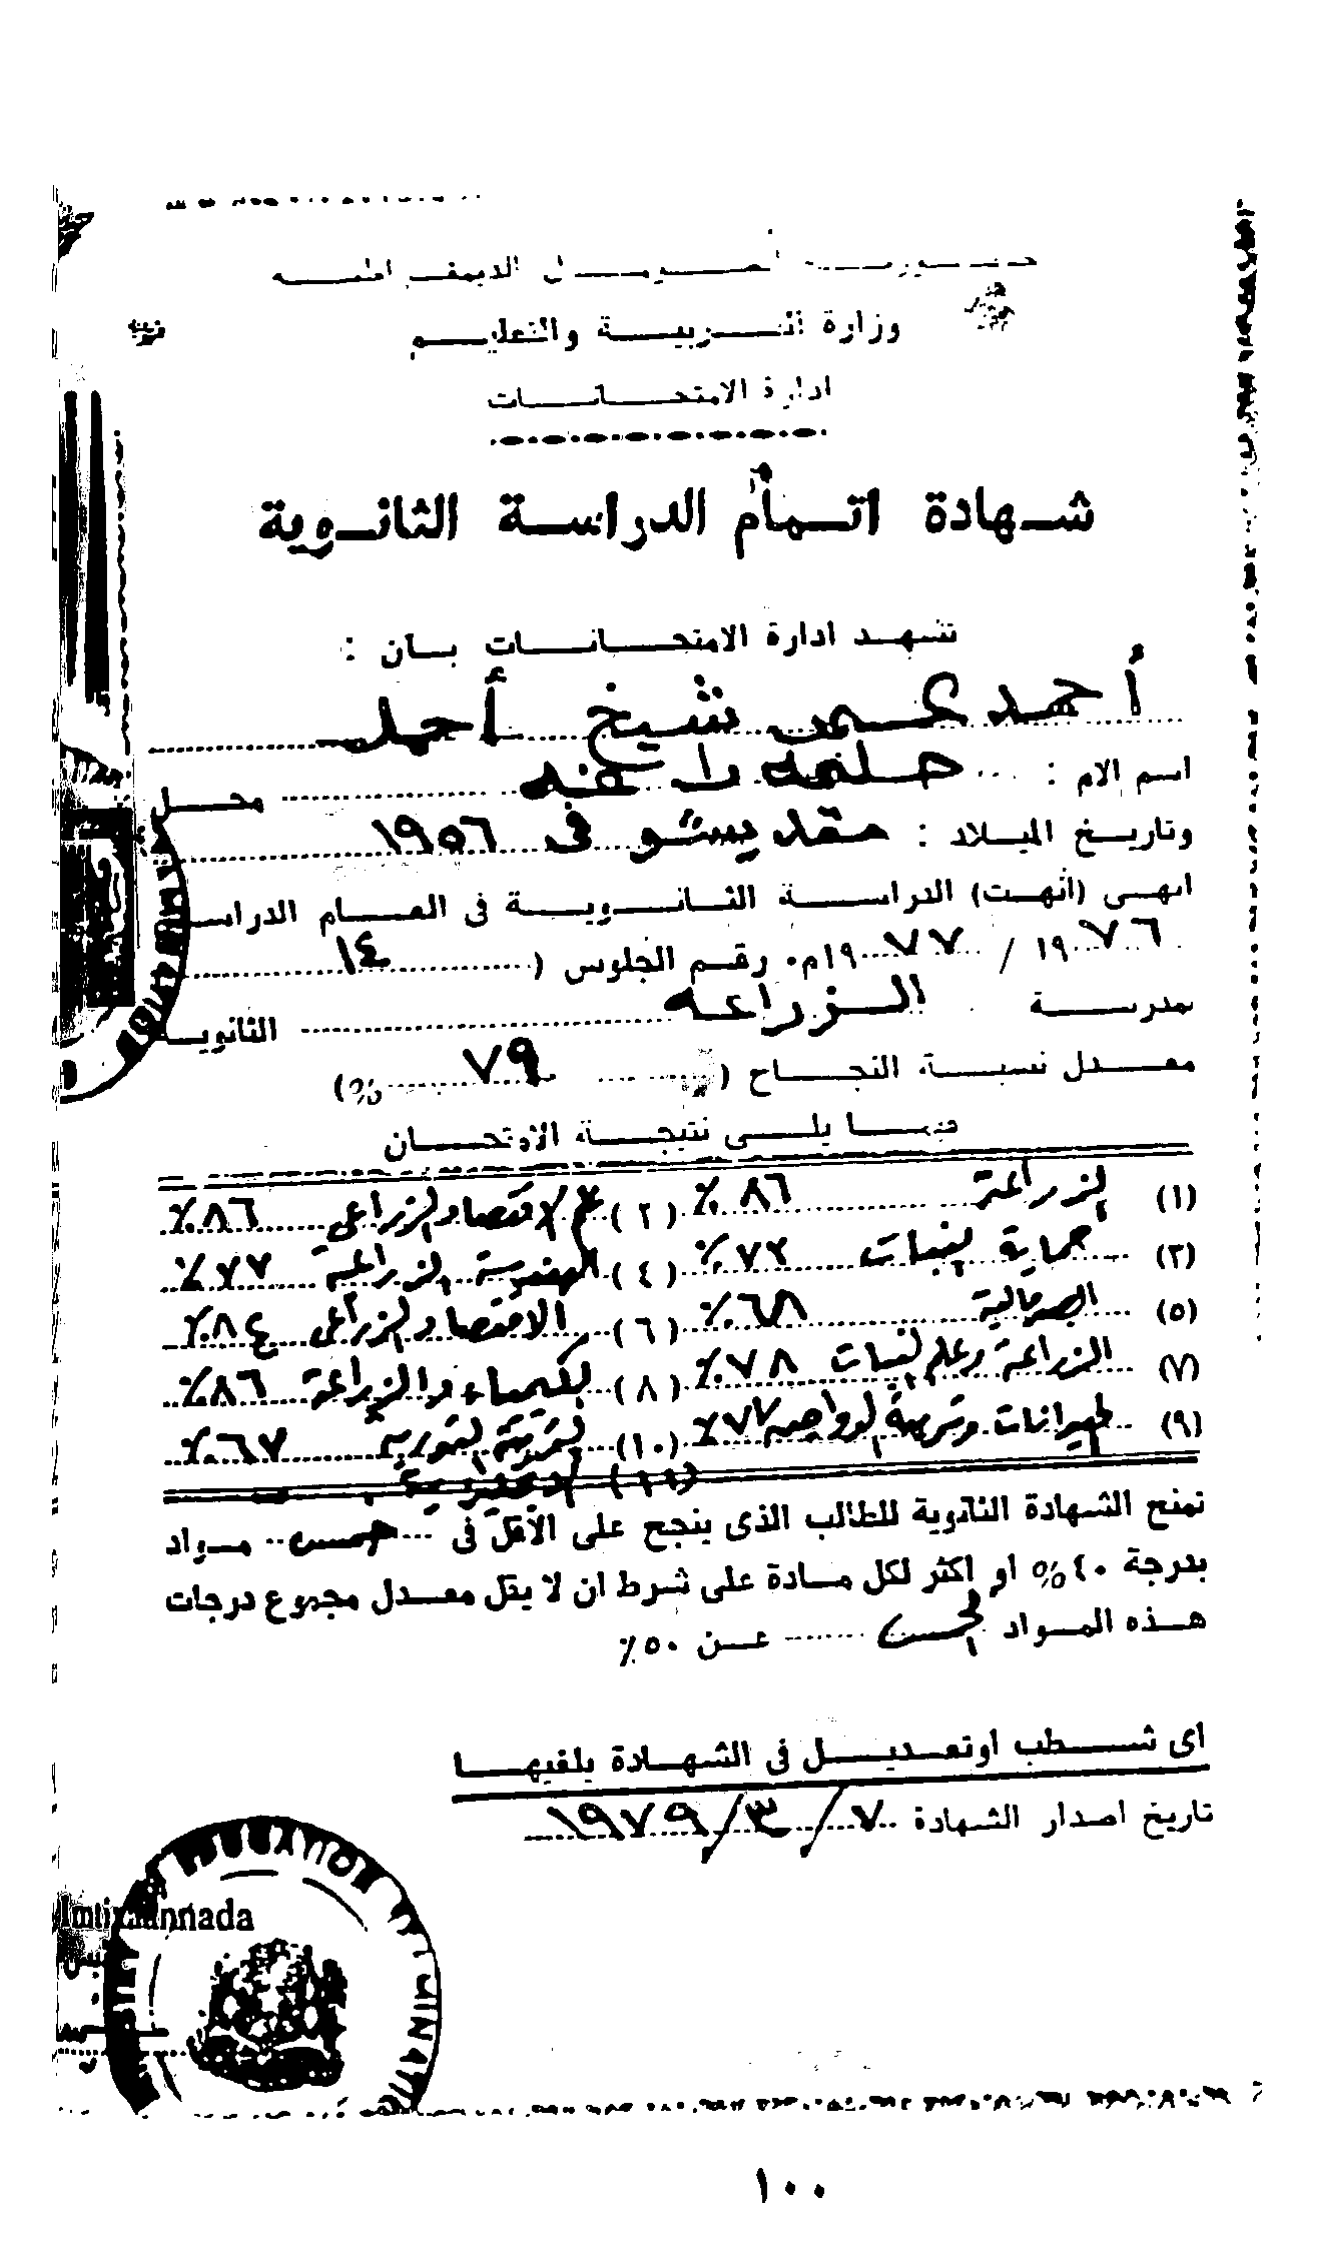 جمهورية الصومال الديمقراطية
وزارة التربية والتعليم
ادارة الامتحانات
شهادة اتمام الدراسة الثانوية
تشهد ادارة الامتحانات بان :
أحمد عمر شيخ أحمد
اسم الام : حليمه محل
وتاريخ الميلاد : مقديشو فى ١٩٥٦
انهى (انهت) الدراسة الثانوية فى العام الدراسى
١٩٧٦ / ١٩٧٧م٠ رقم الجلوس ( ١٤
بمدرسة الزراعه الثانوية
معدل نسبة النجاح ( ٧٩ %)
فيما يلى نتيجة الامتحان
(١) الزراعة ٨٦٪ (٢) الاقتصاد الزراعى ٨٦٪
(٣) حماية النبات ٧٢٪ (٤) الهندسة الزراعية ٧٧٪
(٥) الصومالية ٦٨٪ (٦) الاقتصاد الزراعى ٨٤٪
(٧) الزراعة وعلم النبات ٧٨٪ (٨) الكيمياء والزراعة ٨٦٪
(٩) حيوانات وتربية الدواجن ٧٧٪ (١٠) التربية الثورية ٦٧٪
(١١)
تمنح الشهادة الثانوية للطالب الذى ينجح على الأقل فى خمس مواد
بدرجة ٤٠% او اكثر لكل مادة على شرط ان لا يقل معدل مجموع درجات
هذه المواد الخمس عن ٥٠٪
اى شطب اوتعديل فى الشهادة يلغيها
تاريخ اصدار الشهادة ٧/٣/١٩٧٩
Imtixaannada
١٠٠